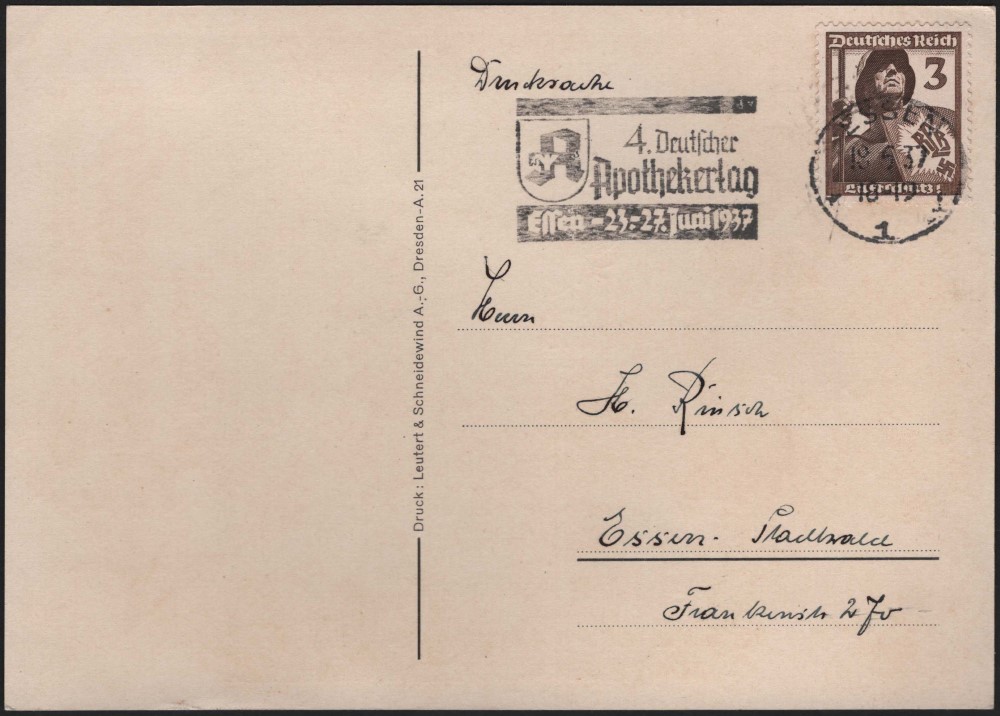 Drucksache
4. Deutscher
Apothekertag
Essen - 23.-27. Juni 1937
Deutsches Reich
3
Luftschutz!
ESSEN
18-19
1
Herrn
H. Rinsch
Essen-Stadtwald
Frankenstr 270
Druck: Leutert & Schneidewind A.-G., Dresden-A. 21